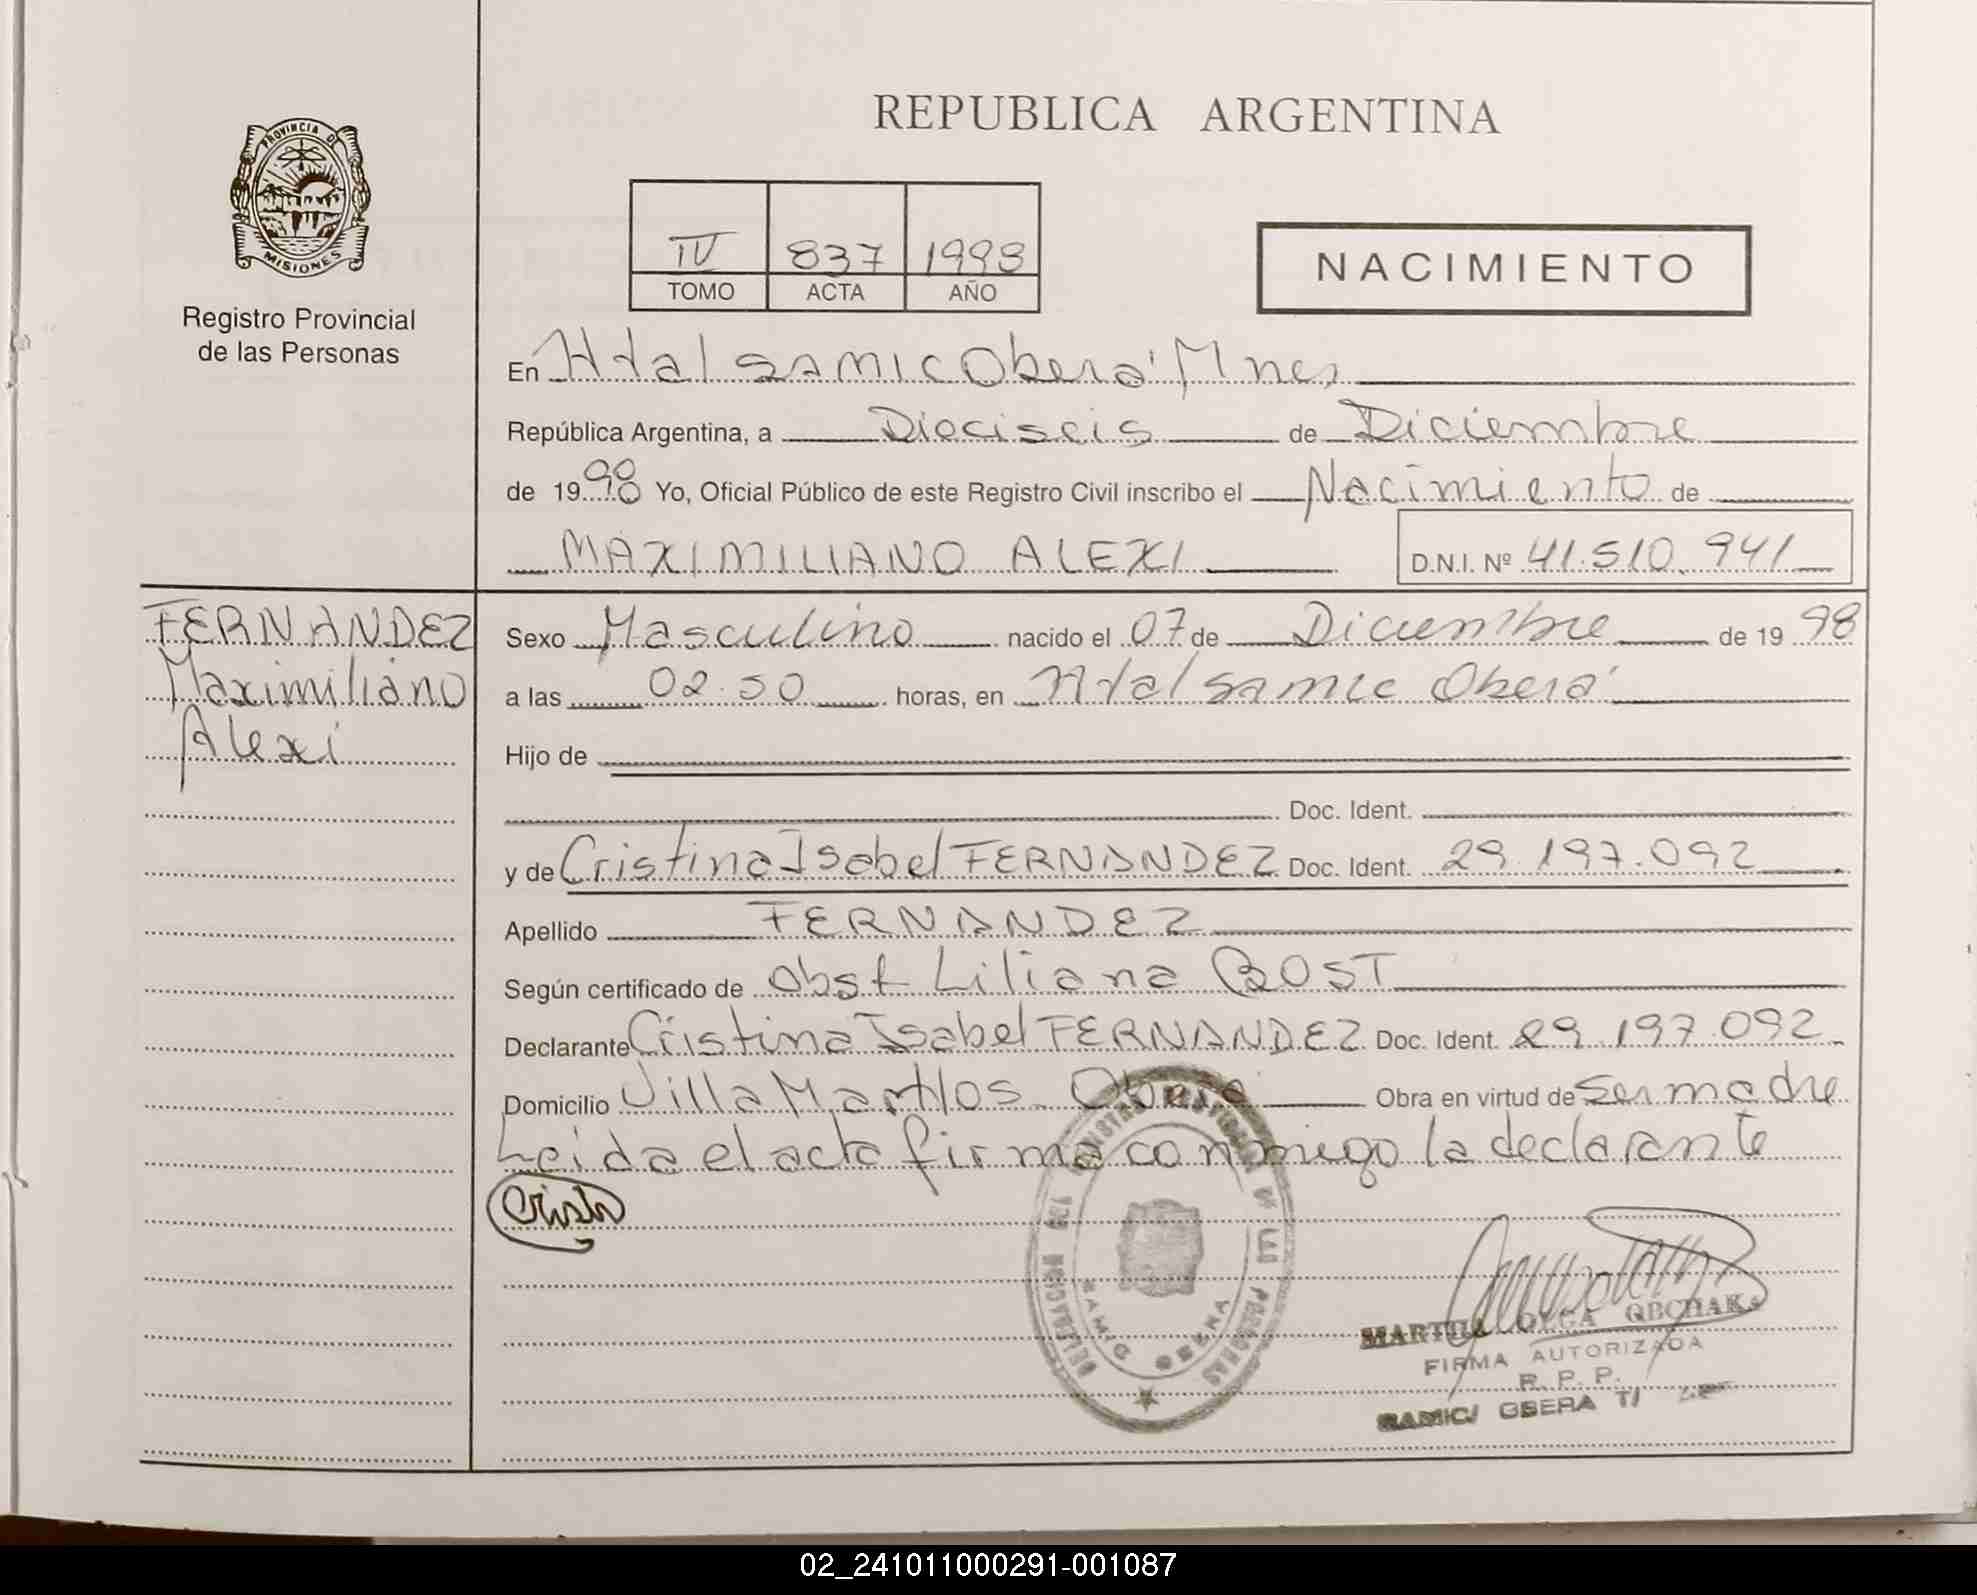 PROVINCIA DE
MISIONES
Registro Provincial
de las Personas
REPUBLICA ARGENTINA
IV 837 1998
TOMO ACTA AÑO
NACIMIENTO
En Htal Samic Oberá Mnes
República Argentina, a Dieciseis de Diciembre
de 1998 Yo, Oficial Público de este Registro Civil inscribo el Nacimiento de
MAXIMILIANO ALEXI D.N.I. Nº 41.510.941
FERNANDEZ
Maximiliano
Alexi
Sexo Masculino nacido el 07 de Diciembre de 1998
a las 02.50 horas, en Htal Samic Oberá
Hijo de
Doc. Ident.
y de Cristina Isabel FERNANDEZ Doc. Ident. 29.197.092
Apellido FERNANDEZ
Según certificado de Obst Liliana BOST
Declarante Cristina Isabel FERNANDEZ Doc. Ident. 29.197.092
Domicilio Villa Martos Oberá Obra en virtud de Ser madre
Leída el acta firma conmigo la declarante
MARTHA OLGA
FIRMA AUTORIZADA
R. P. P.
SAMIC/ OBERA T/
SAMIC OBERA
02_241011000291-001087